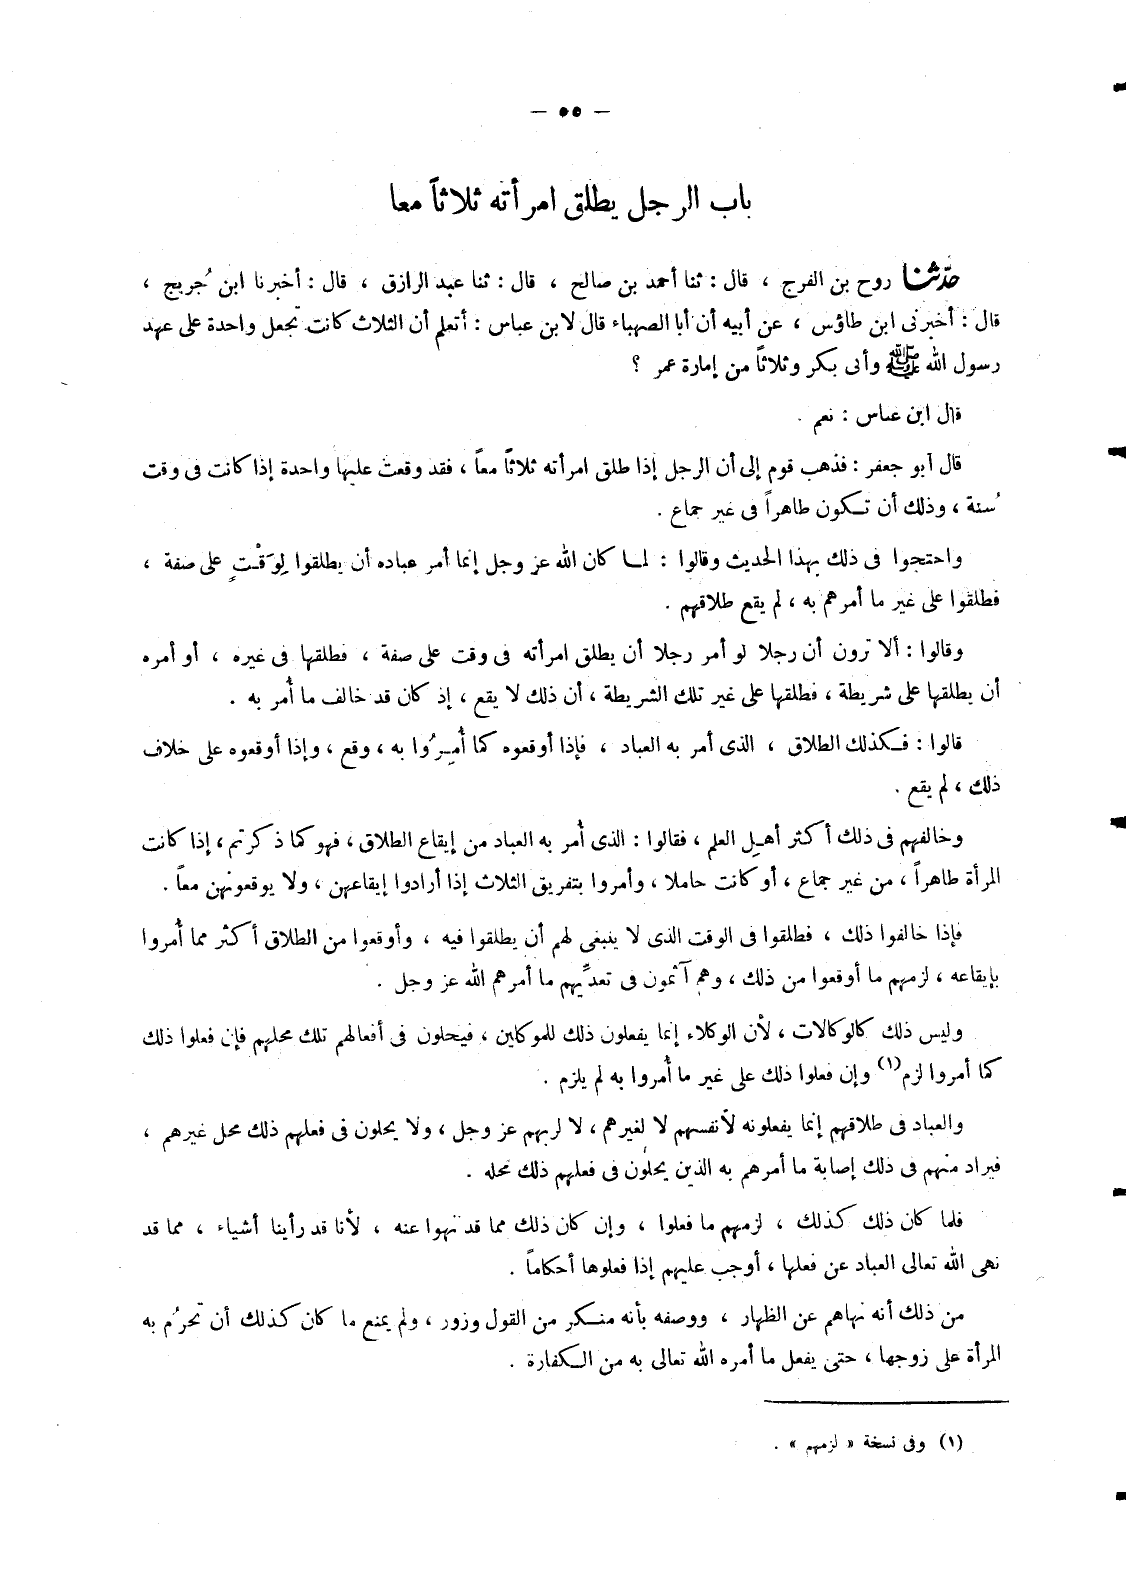 — ٥٥ —
باب الرجل يطلق امرأته ثلاثاً معا
حدّثنا روح بن الفرج ، قال : ثنا أحمد بن صالح ، قال : ثنا عبد الرازق ، قال : أخبرنا ابن جُريج ،
قال : أخبرنى ابن طاؤس ، عن أبيه أن أبا الصهباء قال لابن عباس : أتعلم أن الثلاث كانت تجعل واحدة على عهد
رسول الله ﷺ وأبى بكر وثلاثاً من إمارة عمر ؟
قال ابن عباس : نعم .
قال أبو جعفر : فذهب قوم إلى أن الرجل إذا طلق امرأته ثلاثاً معاً ، فقد وقعت عليها واحدة إذا كانت فى وقت
سُنة ، وذلك أن تكون طاهراً فى غير جماع .
واحتجوا فى ذلك بهذا الحديث وقالوا : لما كان الله عز وجل إنما أمر عباده أن يطلقوا لِوَقْتٍ على صفة ،
فطلقوا على غير ما أمرهم به ، لم يقع طلاقهم .
وقالوا : ألا ترون أن رجلا لو أمر رجلا أن يطلق امرأته فى وقت على صفة ، فطلقها فى غيره ، أو أمره
أن يطلقها على شريطة ، فطلقها على غير تلك الشريطة ، أن ذلك لا يقع ، إذ كان قد خالف ما أُمر به .
قالوا : فكذلك الطلاق ، الذى أمر به العباد ، فإذا أوقعوه كما أُمِرُوا به ، وقع ، وإذا أوقعوه على خلاف
ذلك ، لم يقع .
وخالفهم فى ذلك أكثر أهل العلم ، فقالوا : الذى أُمر به العباد من إيقاع الطلاق ، فهو كما ذكرتم ، إذا كانت
المرأة طاهراً ، من غير جماع ، أو كانت حاملا ، وأمروا بتفريق الثلاث إذا أرادوا إيقاعهن ، ولا يوقعونهن معاً .
فإذا خالفوا ذلك ، فطلقوا فى الوقت الذى لا ينبغى لهم أن يطلقوا فيه ، وأوقعوا من الطلاق أكثر مما أُمروا
بإيقاعه ، لزمهم ما أوقعوا من ذلك ، وهم آثمون فى تعدِّيهم ما أمرهم الله عز وجل .
وليس ذلك كالوكالات ، لأن الوكلاء إنما يفعلون ذلك للموكلين ، فيحلون فى أفعالهم تلك محلهم فإن فعلوا ذلك
كما أمروا لزم(١) وإن فعلوا ذلك على غير ما أُمروا به لم يلزم .
والعباد فى طلاقهم إنما يفعلونه لأنفسهم لا لغيرهم ، لا لربهم عز وجل ، ولا يحلون فى فعلهم ذلك محل غيرهم ،
فيراد منهم فى ذلك إصابة ما أمرهم به الذين يحلون فى فعلهم ذلك محله .
فلما كان ذلك كذلك ، لزمهم ما فعلوا ، وإن كان ذلك مما قد نهوا عنه ، لأنا قد رأينا أشياء ، مما قد
نهى الله تعالى العباد عن فعلها ، أوجب عليهم إذا فعلوها أحكاماً .
من ذلك أنه نهاهم عن الظهار ، ووصفه بأنه منكر من القول وزور ، ولم يمنع ما كان كذلك أن تحرُم به
المرأة على زوجها ، حتى يفعل ما أمره الله تعالى به من الكفارة .
(١) وفى نسخة « لزمهم » .